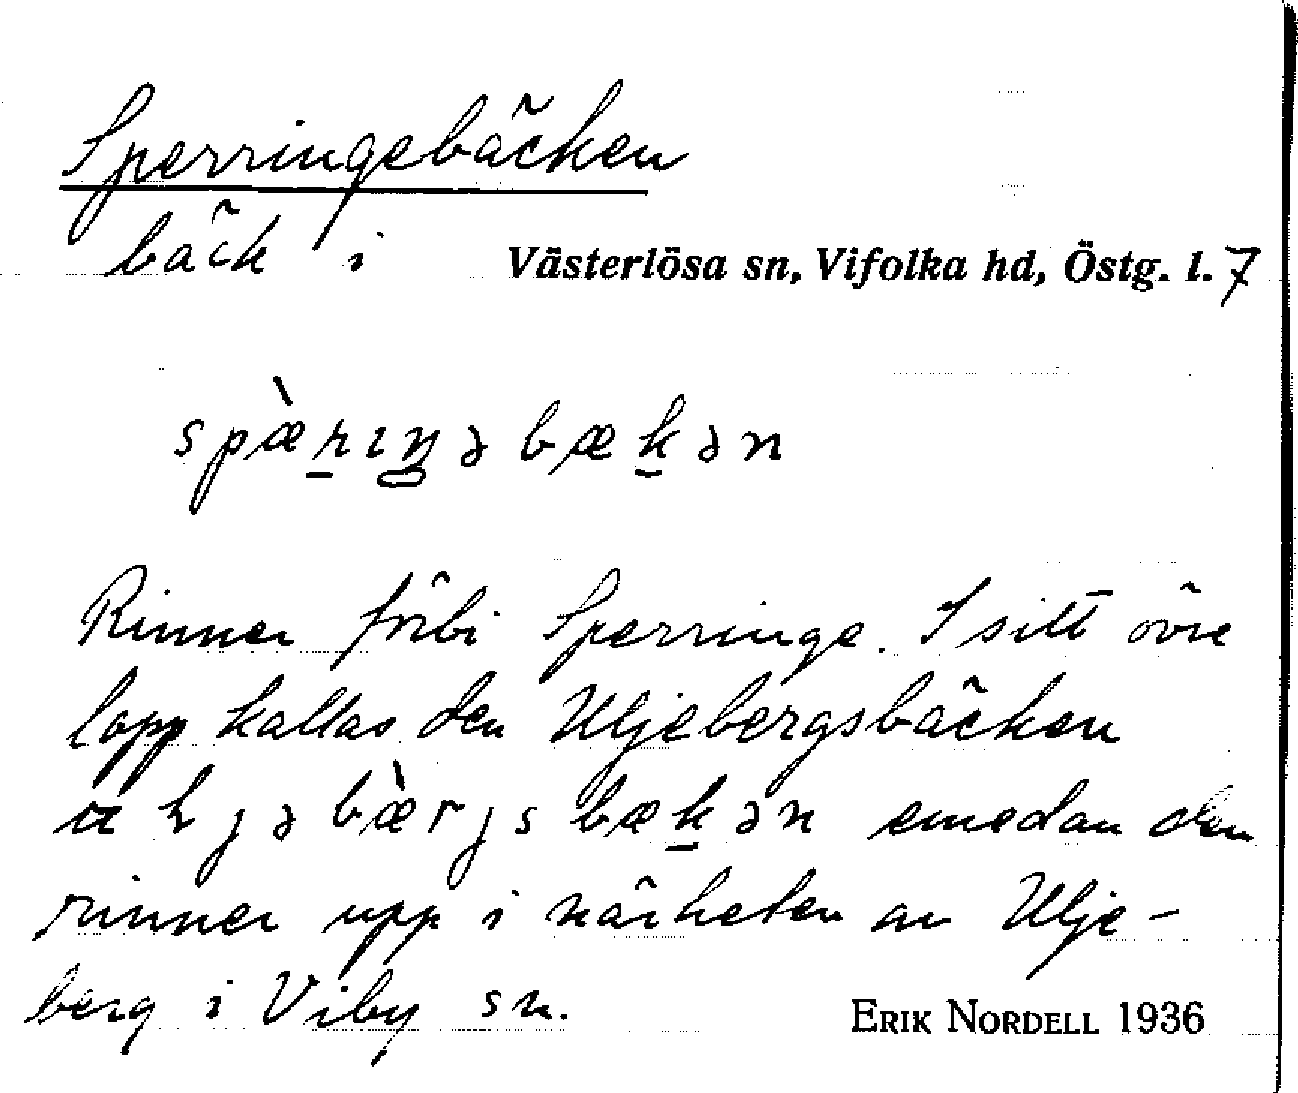 Sperringebäcken
bäck i Västerlösa sn, Vifolka hd, Östg. l. 7
spæ̀rıŋəbækən
Rinner förbi Sperringe. I sitt övre
lopp kallas den Uljebergsbäcken
emedan den
rinner upp i närheten av Ulje-
berg i Viby sn. ERIK NORDELL 1936